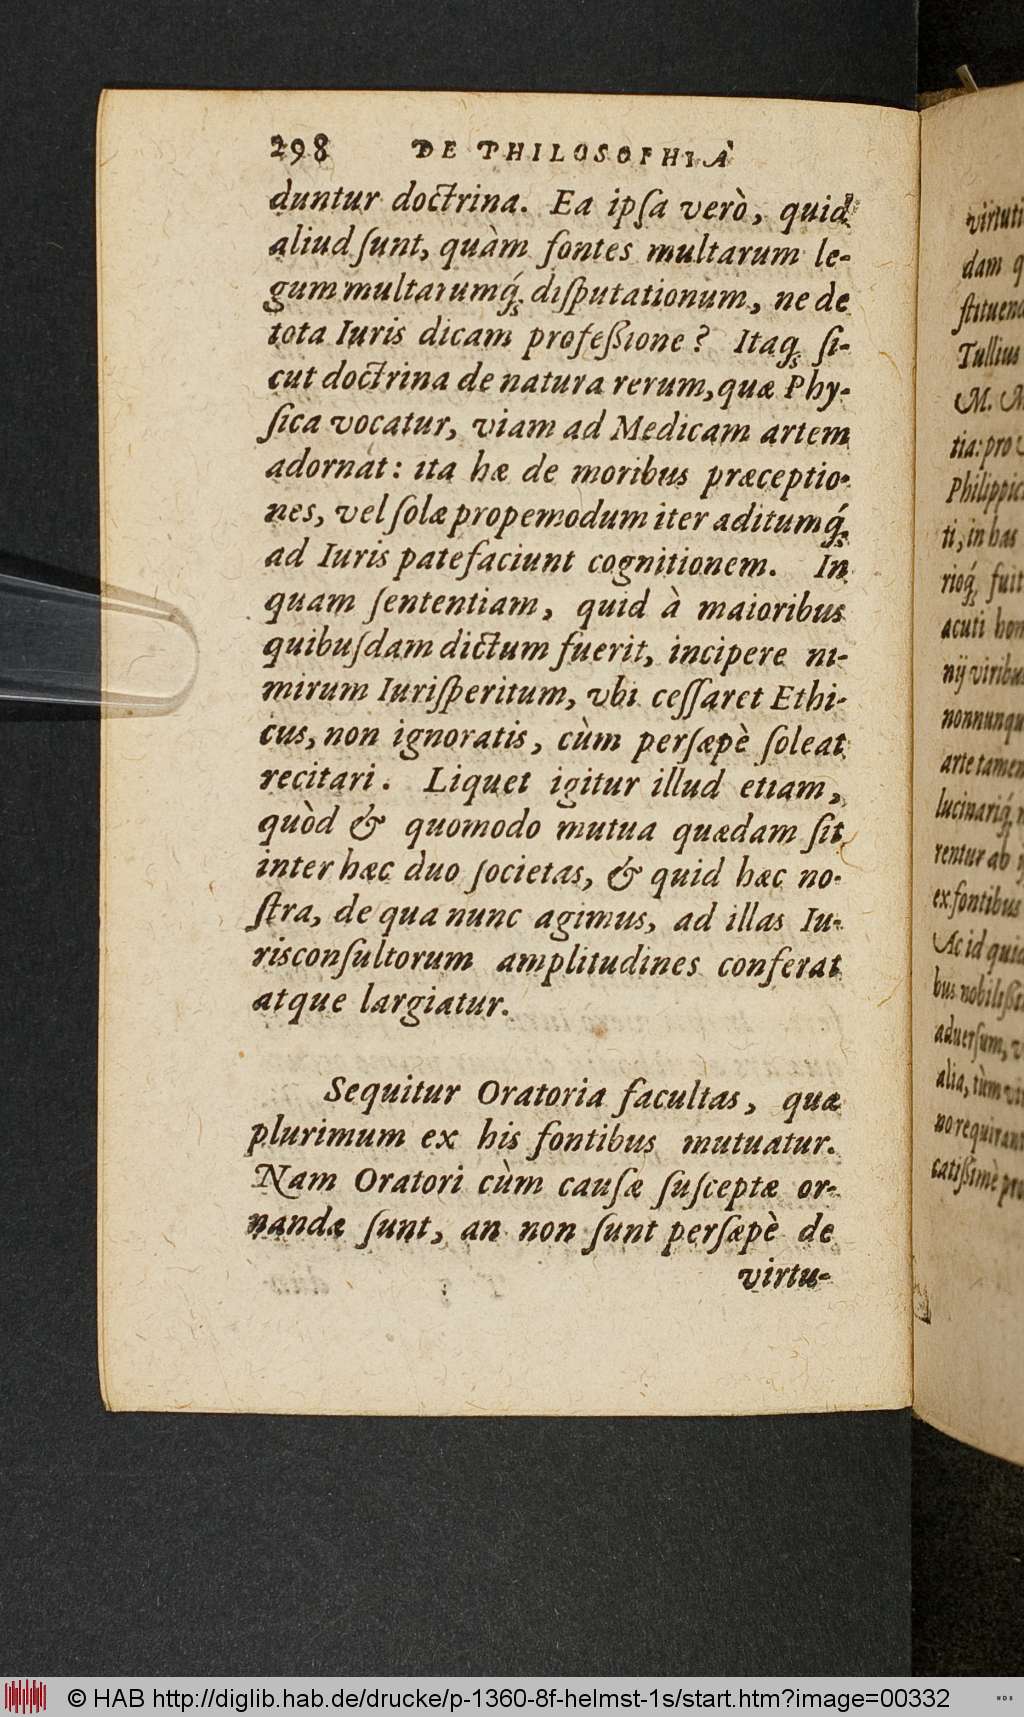 298 DE PHILOSOPHIA
duntur doctrina. Ea ipſa verò, quid
aliud ſunt, quàm fontes multarum le-
gum multarumq́; diſputationum, ne de
tota Iuris dicam profeßione? Itaq; ſi-
cut doctrina de natura rerum, quæ Phy-
ſica vocatur, viam ad Medicam artem
adornat: ita hæ de moribus præceptio-
nes, vel ſolæ propemodum iter aditumq́;
ad Iuris patefaciunt cognitionem. In
quam ſententiam, quid à maioribus
quibuſdam dictum fuerit, incipere ni-
mirum Iuriſperitum, vbi ceſſaret Ethi-
cus, non ignoratis, cùm perſæpè ſoleat
recitari. Liquet igitur illud etiam,
quòd & quomodo mutua quædam ſit
inter hæc duo ſocietas, & quid hæc no-
ſtra, de qua nunc agimus, ad illas Iu-
risconſultorum amplitudines conferat
atque largiatur.
Sequitur Oratoria facultas, quæ
plurimum ex his fontibus mutuatur.
Nam Oratori cùm cauſæ ſuſceptæ or-
nandæ ſunt, an non ſunt perſæpè de
virtu-
virtuti
dam q
ſtituend
Tullius
M. A
tia: pro
Philippic
ti, in has
rioq́; fuit
acuti hom
nij viribus
nonnunqu
arte tamen
lucinariq́;
rentur ab
ex fontibus
Ac id quid
bus nobiliß
aduerſum, v
alia, tùm vi
no requirant
catißimè pro
© HAB http://diglib.hab.de/drucke/p-1360-8f-helmst-1s/start.htm?image=00332